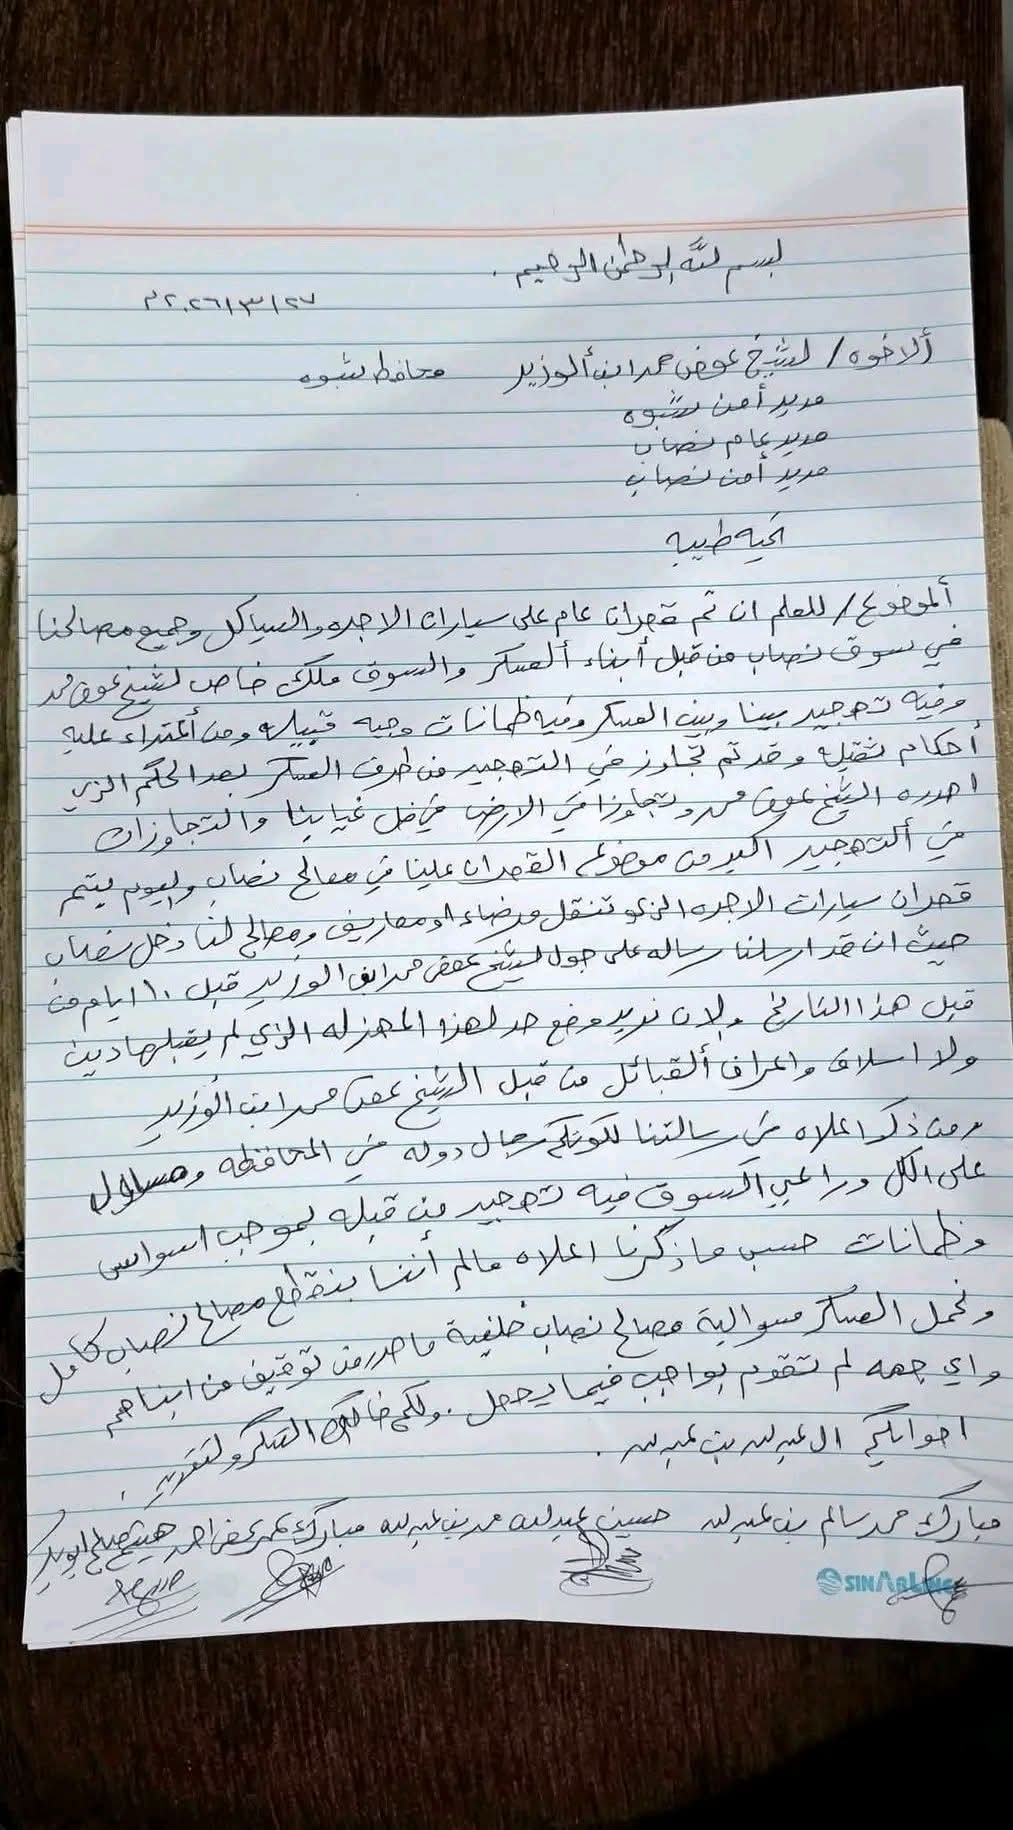 بسم الله الرحمن الرحيم .
٢٠٢٦/٣/٢٧م
ألاخوه / لشيخ عوض محمد ابن ألوزير محافظ شبوه
مدير أمن شبوه
مدير عام نصاب
مدير أمن نصاب
تحيه طيبه
ألموضوع / للعلم ان تم قصران عام على سيارات الاجره والسياكل وجميع مصالحنا
في سوق نصاب من قبل أبناء ألعسكر والسوق ملك خاص لشيخ عوض محمد
وفيه تهجير بينا وبين العسكر وفيه ظمانات وجيه قبيله ومن أعتداء عليه
أحكام ثقيله وقد تم تجاوز في التهجير من طرف العسكر بعد الحكم الزي
اصدره الشيخ عوض محمد وتجاوزا في الارض في ضل غيابنا والتجاوزات
في ألتهجير اكبر من موضوع القصران علينا في مصالح نصاب وليوم يتم
قصران سيارات الاجره الزي تنقل مرضاء او مصاريف ومصالح لنا دخل نصاب
حيث ان قد ارسلنا رساله على جول لشيخ عوض محمد ابن الوزير قبل ١٠ ايام من
قبل هذا التاريخ ولان نريد وضع حد لهذا المهزله الزي لم يقبلها دين
ولا اسلاف واعراف ألقبائل من قبل الشيخ عوض محمد ابن ألوزير
ومن ذكر اعلاه في رسالتنا لكونكم رجال دوله في المحافظه ومساول
على الكل وراعي السوق فيه تهجير من قبله بموجب اسواس
وظمانات حسب ما زكرنا اعلاه مالم أننا بنقطع مصالح نصاب كامل
ونحمل العسكر مسوالية مصالح نصاب خلفية ما صدر من توقيف من ابناهم
واي جهه لم تقوم بواجب فيما يحصل . ولكم خالص الشكر ولتقدير .
اخوانكم ال عبدلله بن عبدلله .
مبارك محمد سالم بن عبدلله حسين عبدلله محمد بن عبدلله مبارك عوض احمد صالح
SINARLINE